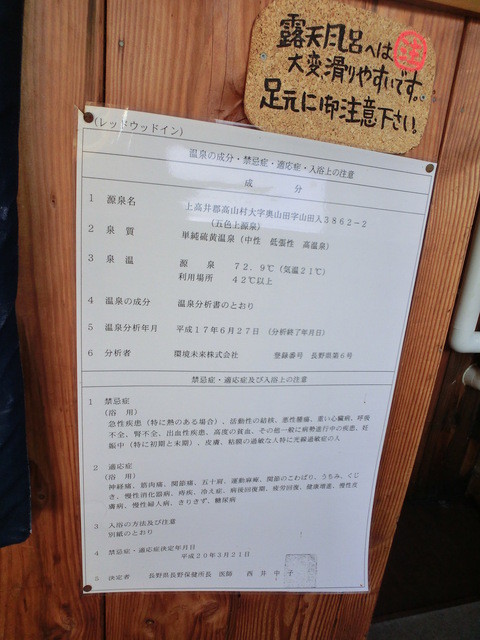 露天風呂へは
注
大変滑りやすいです。
足元に御注意下さい。
(レッドウッドイン)
温泉の成分・禁忌症・適応症・入浴上の注意
成　　分
1 源泉名　上高井郡高山村大字奥山田字山田入3862-2
(五色上源泉)
2 泉　質　単純硫黄温泉(中性　低張性　高温泉)
3 泉　温　源　泉　72.9℃(気温21℃)
利用場所　42℃以上
4 温泉の成分　温泉分析書のとおり
5 温泉分析年月　平成17年6月27日　(分析終了年月日)
6 分析者　環境未来株式会社　登録番号　長野県第6号
禁忌症・適応症及び入浴上の注意
1 禁忌症
(浴　用)
急性疾患(特に熱のある場合)、活動性の結核、悪性腫瘍、重い心臓病、呼吸
不全、腎不全、出血性疾患、高度の貧血、その他一般に病勢進行中の疾患、妊
娠中(特に初期と末期)、皮膚、粘膜の過敏な人特に光線過敏症の人
2 適応症
(浴　用)
神経痛、筋肉痛、関節痛、五十肩、運動麻痺、関節のこわばり、うちみ、くじ
き、慢性消化器病、痔疾、冷え症、病後回復期、疲労回復、健康増進、慢性皮
膚病、慢性婦人病、きりきず、糖尿病
3 入浴の方法及び注意
別紙のとおり
4 禁忌症・適応症決定年月日
平成20年3月21日
5 決定者　長野県長野保健所長　医師　西井　子